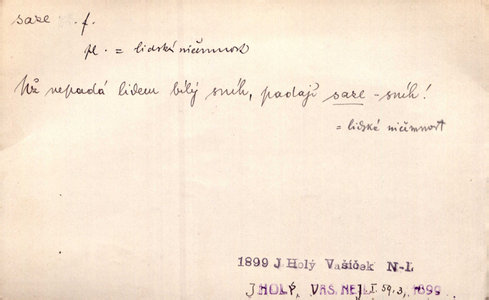 saze f.
pl. = lidská ničemnost
Už nepadá lidem bílý sníh, padají saze - sníh!
= lidská ničemnost
1899 J Holý Vašíček N-L
J.HOLÝ, VAŠ. NEJL. I 59,3, 1899